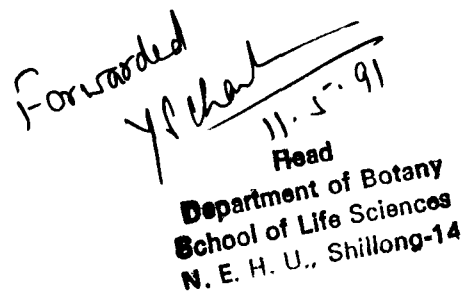 Forwarded
11.5.91
Head
Department of Botany
School of Life Sciences
N. E. H. U., Shillong-14